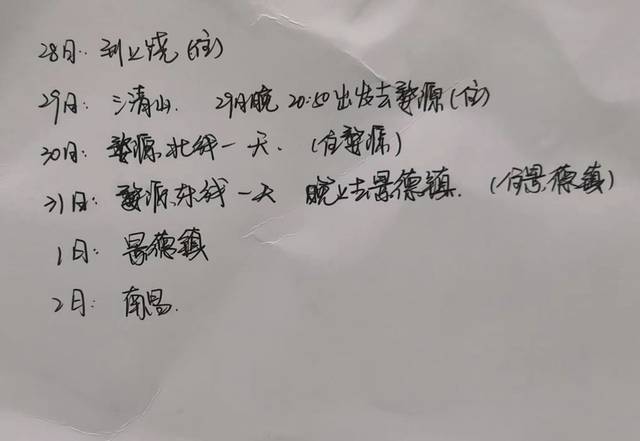 28日：到上饶(住)
29日：三清山. 29日晚 20:50出发去婺源(住)
30日：婺源北线一天. (住婺源)
31日：婺源东线一天 晚上去景德镇. (住景德镇)
1日：景德镇
2日：南昌.